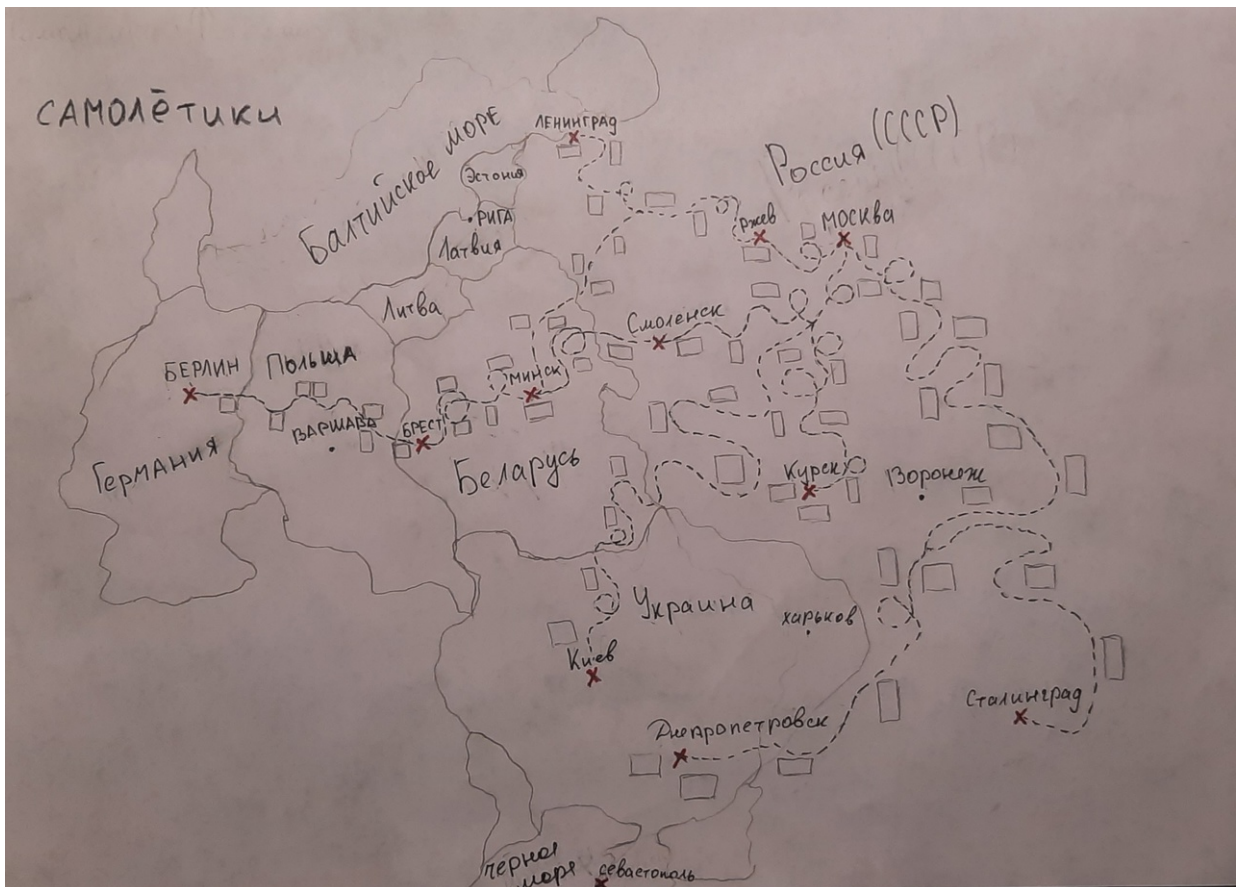 САМОЛЁТИКИ
ЛЕНИНГРАД
Балтийское МОРЕ
Россия (СССР)
Эстония
РИГА
Латвия
Ржев
МОСКВА
Литва
Смоленск
БЕРЛИН
ПОЛЬША
МИНСК
ВАРШАВА
БРЕСТ
ГЕРМАНИЯ
Беларусь
Курск
Воронеж
Украина
Харьков
Киев
Сталинград
Днепропетровск
Черное
море
Севастополь